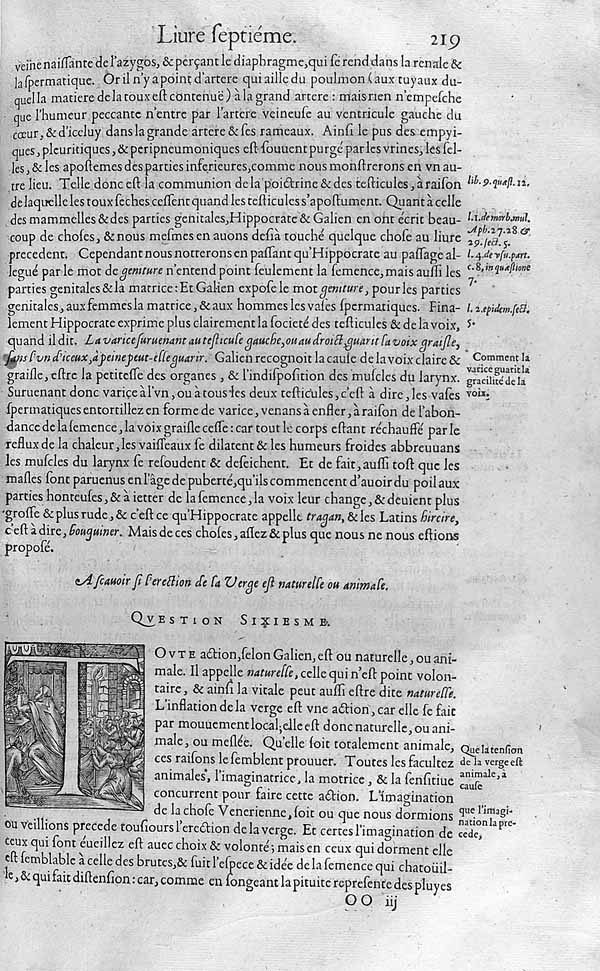 Liure ſeptiéme. 219
veine naiſſante de l'azygos, & perçant le diaphragme, qui ſe rend dans la renale &
la ſpermatique. Or il n'y a point d'artere qui aille du poulmon (aux tuyaux du-
quel la matiere de la toux eſt contenuë) à la grand artere : mais rien n'empeſche
que l'humeur peccante n'entre par l'artere veineuſe au ventricule gauche du
cœur, & d'iceluy dans la grande artere & ſes rameaux. Ainſi le pus des empyi-
ques, pleuritiques, & peripneumoniques eſt ſouuent purgé par les vrines, les ſel-
les, & les apoſtemes des parties inferieures, comme nous monſtrerons en vn au-
tre lieu. Telle donc eſt la communion de la poictrine & des teſticules, à raiſon
de laquelle les toux ſeches ceſſent quand les teſticules s'apoſtument. Quant à celle
des mammelles & des parties genitales, Hippocrate & Galien en ont écrit beau-
coup de choſes, & nous meſmes en auons deſià touché quelque choſe au liure
precedent. Cependant nous notterons en paſſant qu'Hippocrate au paſſage al-
legué par le mot de geniture n'entend point ſeulement la ſemence, mais auſſi les
parties genitales & la matrice : Et Galien expoſe le mot geniture, pour les parties
genitales, aux femmes la matrice, & aux hommes les vaſes ſpermatiques. Fina-
lement Hippocrate exprime plus clairement la ſocieté des teſticules & de la voix,
quand il dit. La varice ſuruenant au teſticule gauche, ou au droict, guarit la voix graiſle,
ſans l'vn d'iceux, à peine peut-elle guarir. Galien recognoit la cauſe de la voix claire &
graiſle, eſtre la petiteſſe des organes, & l'indiſpoſition des muſcles du larynx.
Suruenant donc varice à l'vn, ou à tous les deux teſticules, c'eſt à dire, les vaſes
ſpermatiques entortillez en forme de varice, venans à enfler, à raiſon de l'abon-
dance de la ſemence, la voix graiſle ceſſe : car tout le corps eſtant réchauffé par le
reflux de la chaleur, les vaiſſeaux ſe dilatent & les humeurs froides abbreuuans
les muſcles du larynx ſe reſoudent & deſeichent. Et de fait, auſſi toſt que les
maſles ſont paruenus en l'âge de puberté, qu'ils commencent d'auoir du poil aux
parties honteuſes, & à ietter de la ſemence, la voix leur change, & deuient plus
groſſe & plus rude, & c'eſt ce qu'Hippocrate appelle tragan, & les Latins hircire,
c'eſt à dire, bouquiner. Mais de ces choſes, aſſez & plus que nous ne nous eſtions
propoſé.
lib. 9. quæſt. 12.
l. 1. de morb. mul.
Aph. 27. 28 &
29. ſect. 5.
l. 4. de vſu. part.
c. 8, in quæſtione
7.
l. 2. epidem. ſect.
5.
Comment la
varice guarit la
gracilité de la
voix.
A ſcauoir ſi l'erection de la Verge eſt naturelle ou animale.
QVESTION SIXIESME.
TOVTE action, ſelon Galien, eſt ou naturelle, ou ani-
male. Il appelle naturelle, celle qui n'eſt point volon-
taire, & ainſi la vitale peut auſſi eſtre dite naturelle.
L'inflation de la verge eſt vne action, car elle ſe fait
par mouuement local; elle eſt donc naturelle, ou ani-
male, ou meſlée. Qu'elle ſoit totalement animale,
ces raiſons le ſemblent prouuer. Toutes les facultez
animales, l'imaginatrice, la motrice, & la ſenſitiue
concurrent pour faire cette action. L'imagination
de la choſe Venerienne, ſoit ou que nous dormions
ou veillions precede touſiours l'erection de la verge. Et certes l'imagination de
ceux qui ſont éueillez eſt auec choix & volonté; mais en ceux qui dorment elle
eſt ſemblable à celle des brutes, & ſuit l'eſpece & idée de la ſemence qui chatoüil-
le, & qui fait diſtenſion : car, comme en ſongeant la pituite repreſente des pluyes
Que la tenſion
de la verge eſt
animale, à
cauſe
que l'imagi-
nation la pre-
cede,
OO iij